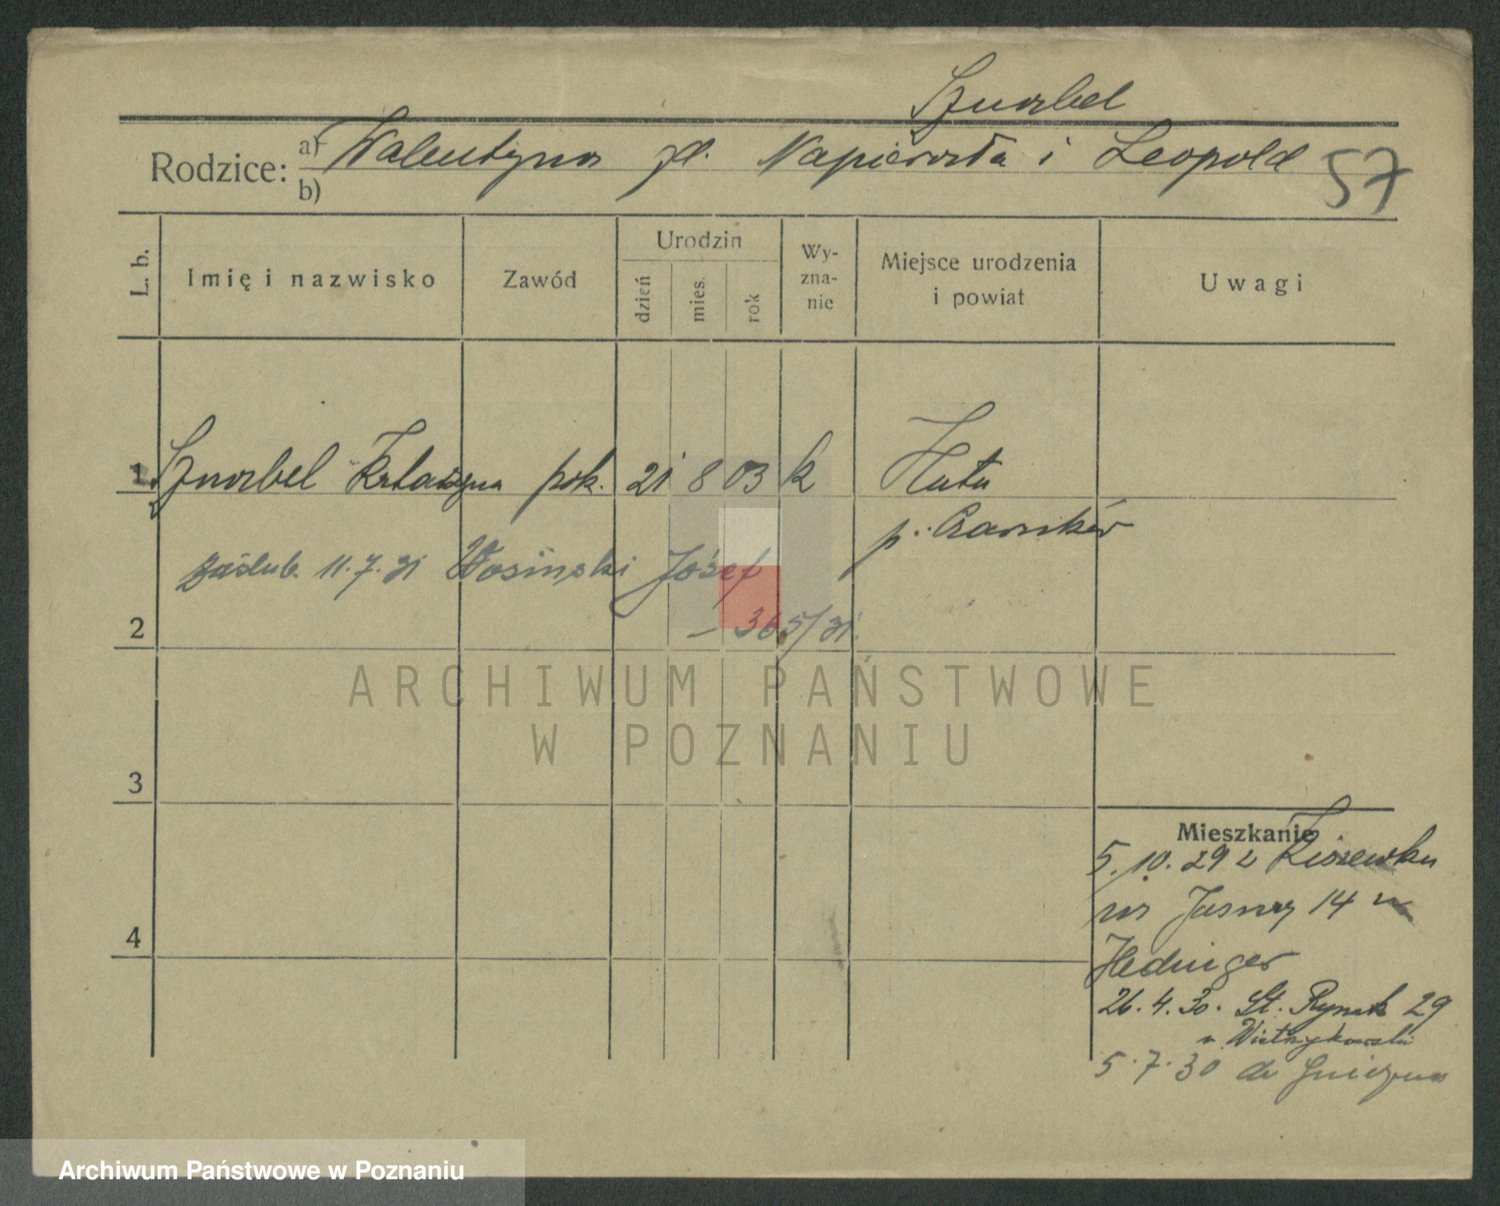 Sznorbel
Rodzice: a) Walentyna zd. Napierała i Leopold 57
b)
L. b.
Imię i nazwisko
Zawód
Urodzin
dzień
mies.
rok
Wy-
zna-
nie
Miejsce urodzenia
i powiat
Uwagi
1 Sznorbel Katarzyna pok. 21 8 03 k Huta
p. Czarnków
zaślub. 11.7.31 Wosiński Józef
2 – 365/31.
ARCHIWUM PAŃSTWOWE
W POZNANIU
3
Mieszkanie
5.10.29 z Kiszewka
na Jasna 14 u
4
Hedinger
26.4.30. St. Rynek 29
u
5.7.30 do Gniezna
Archiwum Państwowe w Poznaniu